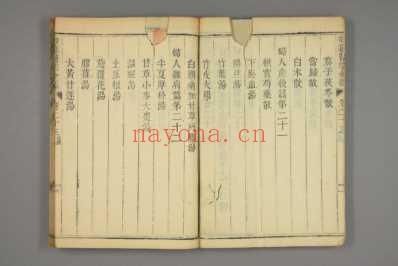 葵子茯苓散
當歸散
白朮散
婦人產後篇第二十一
枳實芍藥散
下瘀血湯
陽旦湯
竹葉湯
竹皮大丸
白頭翁加甘草阿膠湯
婦人雜病篇第二十二
半夏厚朴湯
甘草小麥大棗湯
溫經湯
土瓜根湯
旋覆花湯
膠薑湯
大黃甘遂湯
nayona.cn